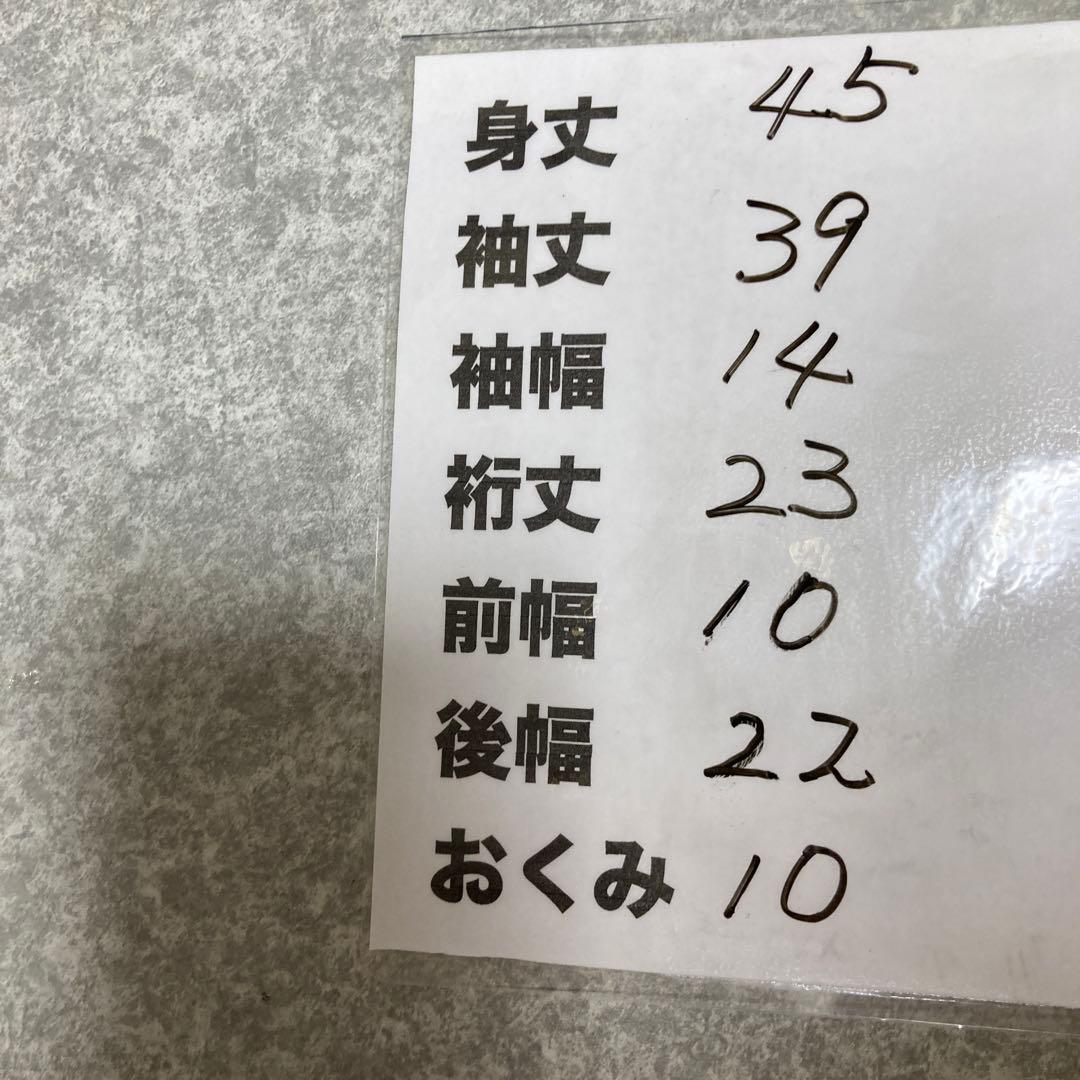 身丈 45
袖丈 39
袖幅 14
裄丈 23
前幅 10
後幅 22
おくみ 10